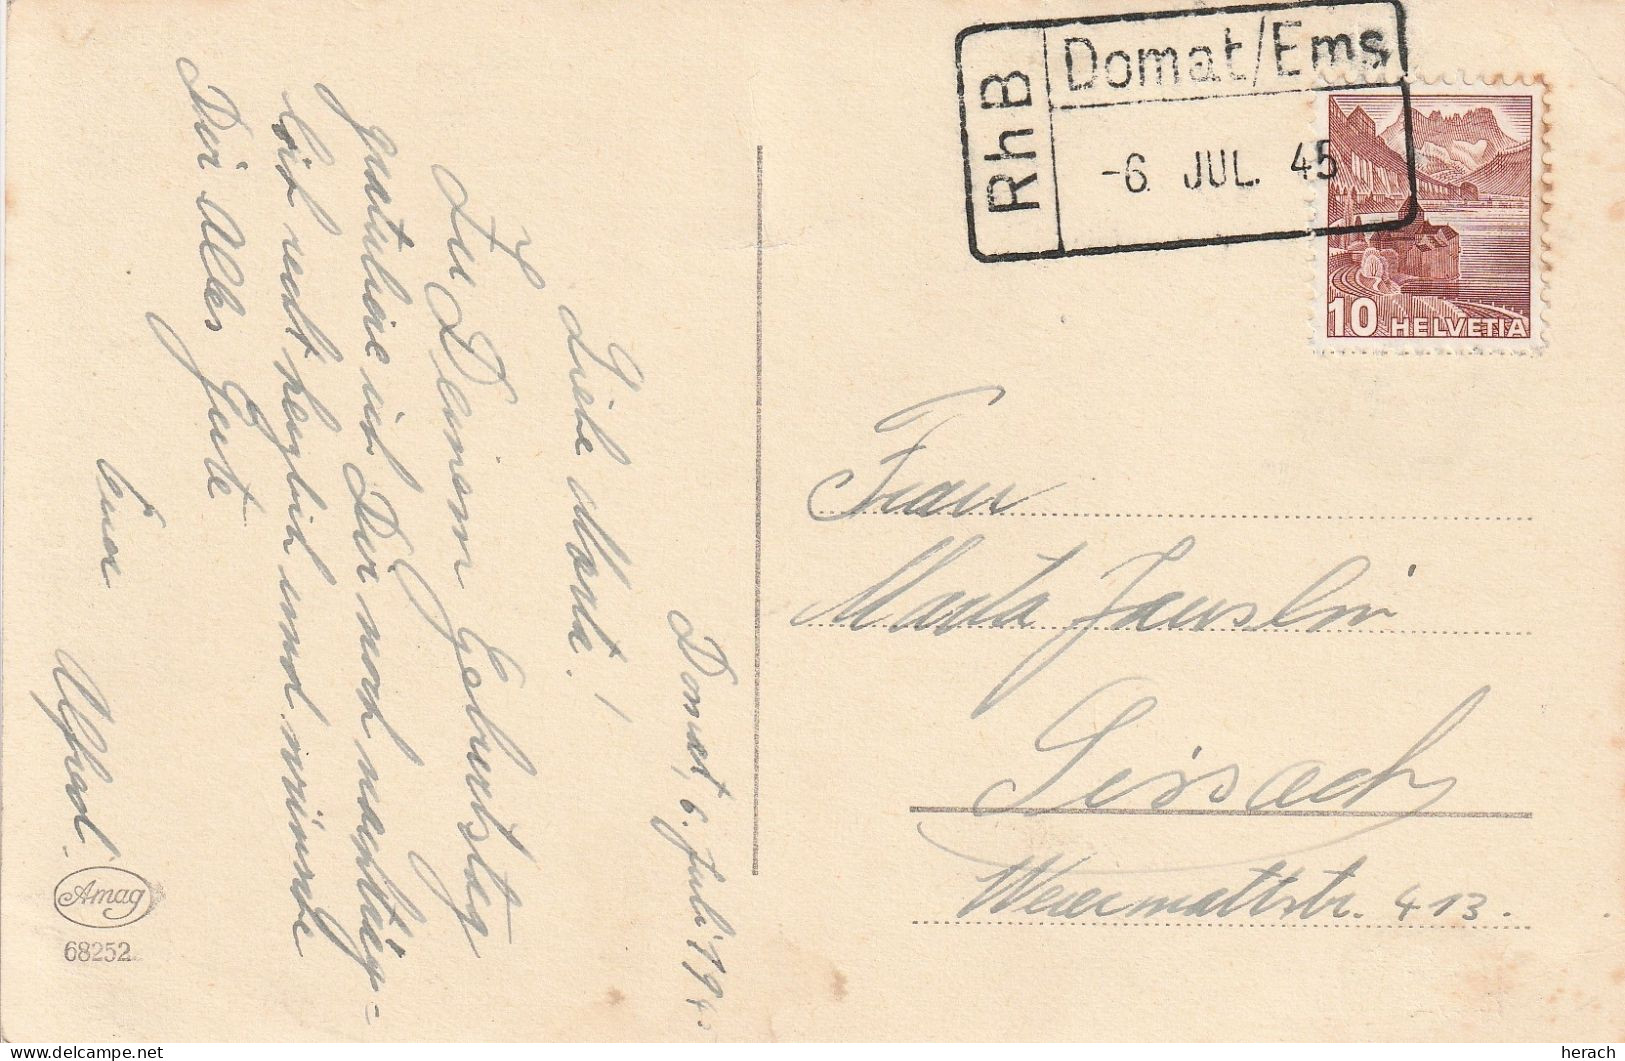 Domat, 6. Juli 1945
Liebe Marta!
Zu Deinem Geburtstag
gratuliere ich Dir noch nachträg-
lich recht herzlich und wünsche
Dir alles Gute
Euer Alfred.
Amag
68252
RhB
Domat/Ems
-6. JUL. 45
10 HELVETIA
Frau
Marta Jauslin
Sissach
Weiermattstr. 413.
herach
delcampe.net